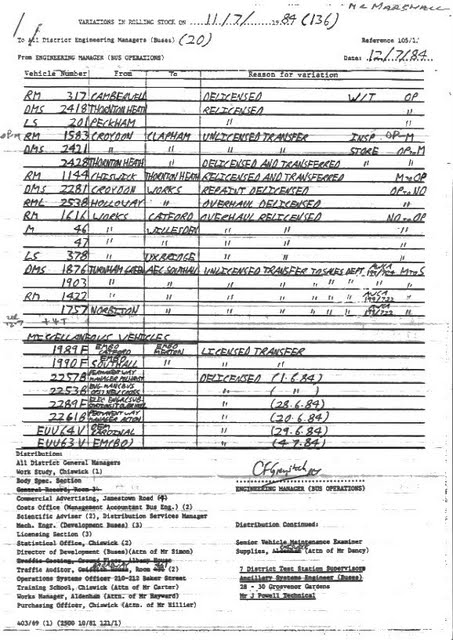 Mc MARSHALL
VARIATIONS IN ROLLING STOCK ON 11/7/1984 (136)
To All District Engineering Managers (Buses) (20) Reference 105/1/
From ENGINEERING MANAGER (BUS OPERATIONS) Date: 12/7/84
Vehicle Number From To Reason for variation
RM 317 CAMBERWELL DELICENSED W/T OP
DMS 2418 THORNTON HEATH RELICENSED " "
LS 201 PECKHAM " " "
RM 1583 CROYDON CLAPHAM UNLICENSED TRANSFER INSP OP-M
DMS 2421 " " " STORE OP-M
2428 THORNTON HEATH " DELICENSED AND TRANSFERRED " "
RM 1144 CHISWICK THORNTON HEATH RELICENSED AND TRANSFERRED M to OP
DMS 2281 CROYDON WORKS REPAINT DELICENSED OP to NO
RML 2538 HOLLOWAY " OVERHAUL DELICENSED "
RM 1616 WORKS CATFORD OVERHAUL RELICENSED NO to OP
M 46 " WILLESDEN " " "
47 " " " " "
LS 378 " UXBRIDGE " " "
DMS 1876 TURNHAM GREEN AEC SOUTHALL UNLICENSED TRANSFER TO SALES DEPT. M to S
1903 " " " " " " "
RM 1422 " " " "
1757 NORBITON " " " " " "
MISCELLANEOUS VEHICLES
1989F EMBO CATFORD EMBO MERTON LICENSED TRANSFER
1990F EMBO SOUTHALL " " "
2257B PERMANENT WAY MANAGER DELICENSED (1.6.84)
2253B NEW CROSS " ( " )
2289F " (28.6.84)
2261B PERMANENT WAY MANAGER ACTON " (20.6.84)
EUU 64V CARDINAL " (29.6.84)
EUU 63V EM(BO) " (4.7.84)
Distribution:
All District General Managers
Work Study, Chiswick (1)
Body Spec. Section
General Record, Room
ENGINEERING MANAGER (BUS OPERATIONS)
Commercial Advertising, Jamestown Road (4)
Costs Office (Management Accountant Bus Eng.) (2)
Scientific Adviser (2), Distribution Services Manager
Mech. Engr. (Development Buses) (3) Distribution Continued:
Licensing Section (3)
Statistical Office, Chiswick (2) Senior Vehicle Maintenance Examiner
Director of Development (Buses)(Attn of Mr Simon) Supplies, Aldenham (Attn of Mr Dancy)
Traffic Costing, Ground Floor, Albany House
Traffic Auditor, House, Room (2) 7 District Test Station Supervisors
Operations Systems Officer 210-212 Baker Street Ancillary Systems Engineer (Buses)
Training School, Chiswick (Attn of Mr Carter) 28 - 30 Grosvenor Gardens
Works Manager, Aldenham (Attn. of Mr Hayward) Mr J Powell Technical
Purchasing Officer, Chiswick (Attn of Mr Hillier)
403/69 (1) (2500 10/81 121/1)